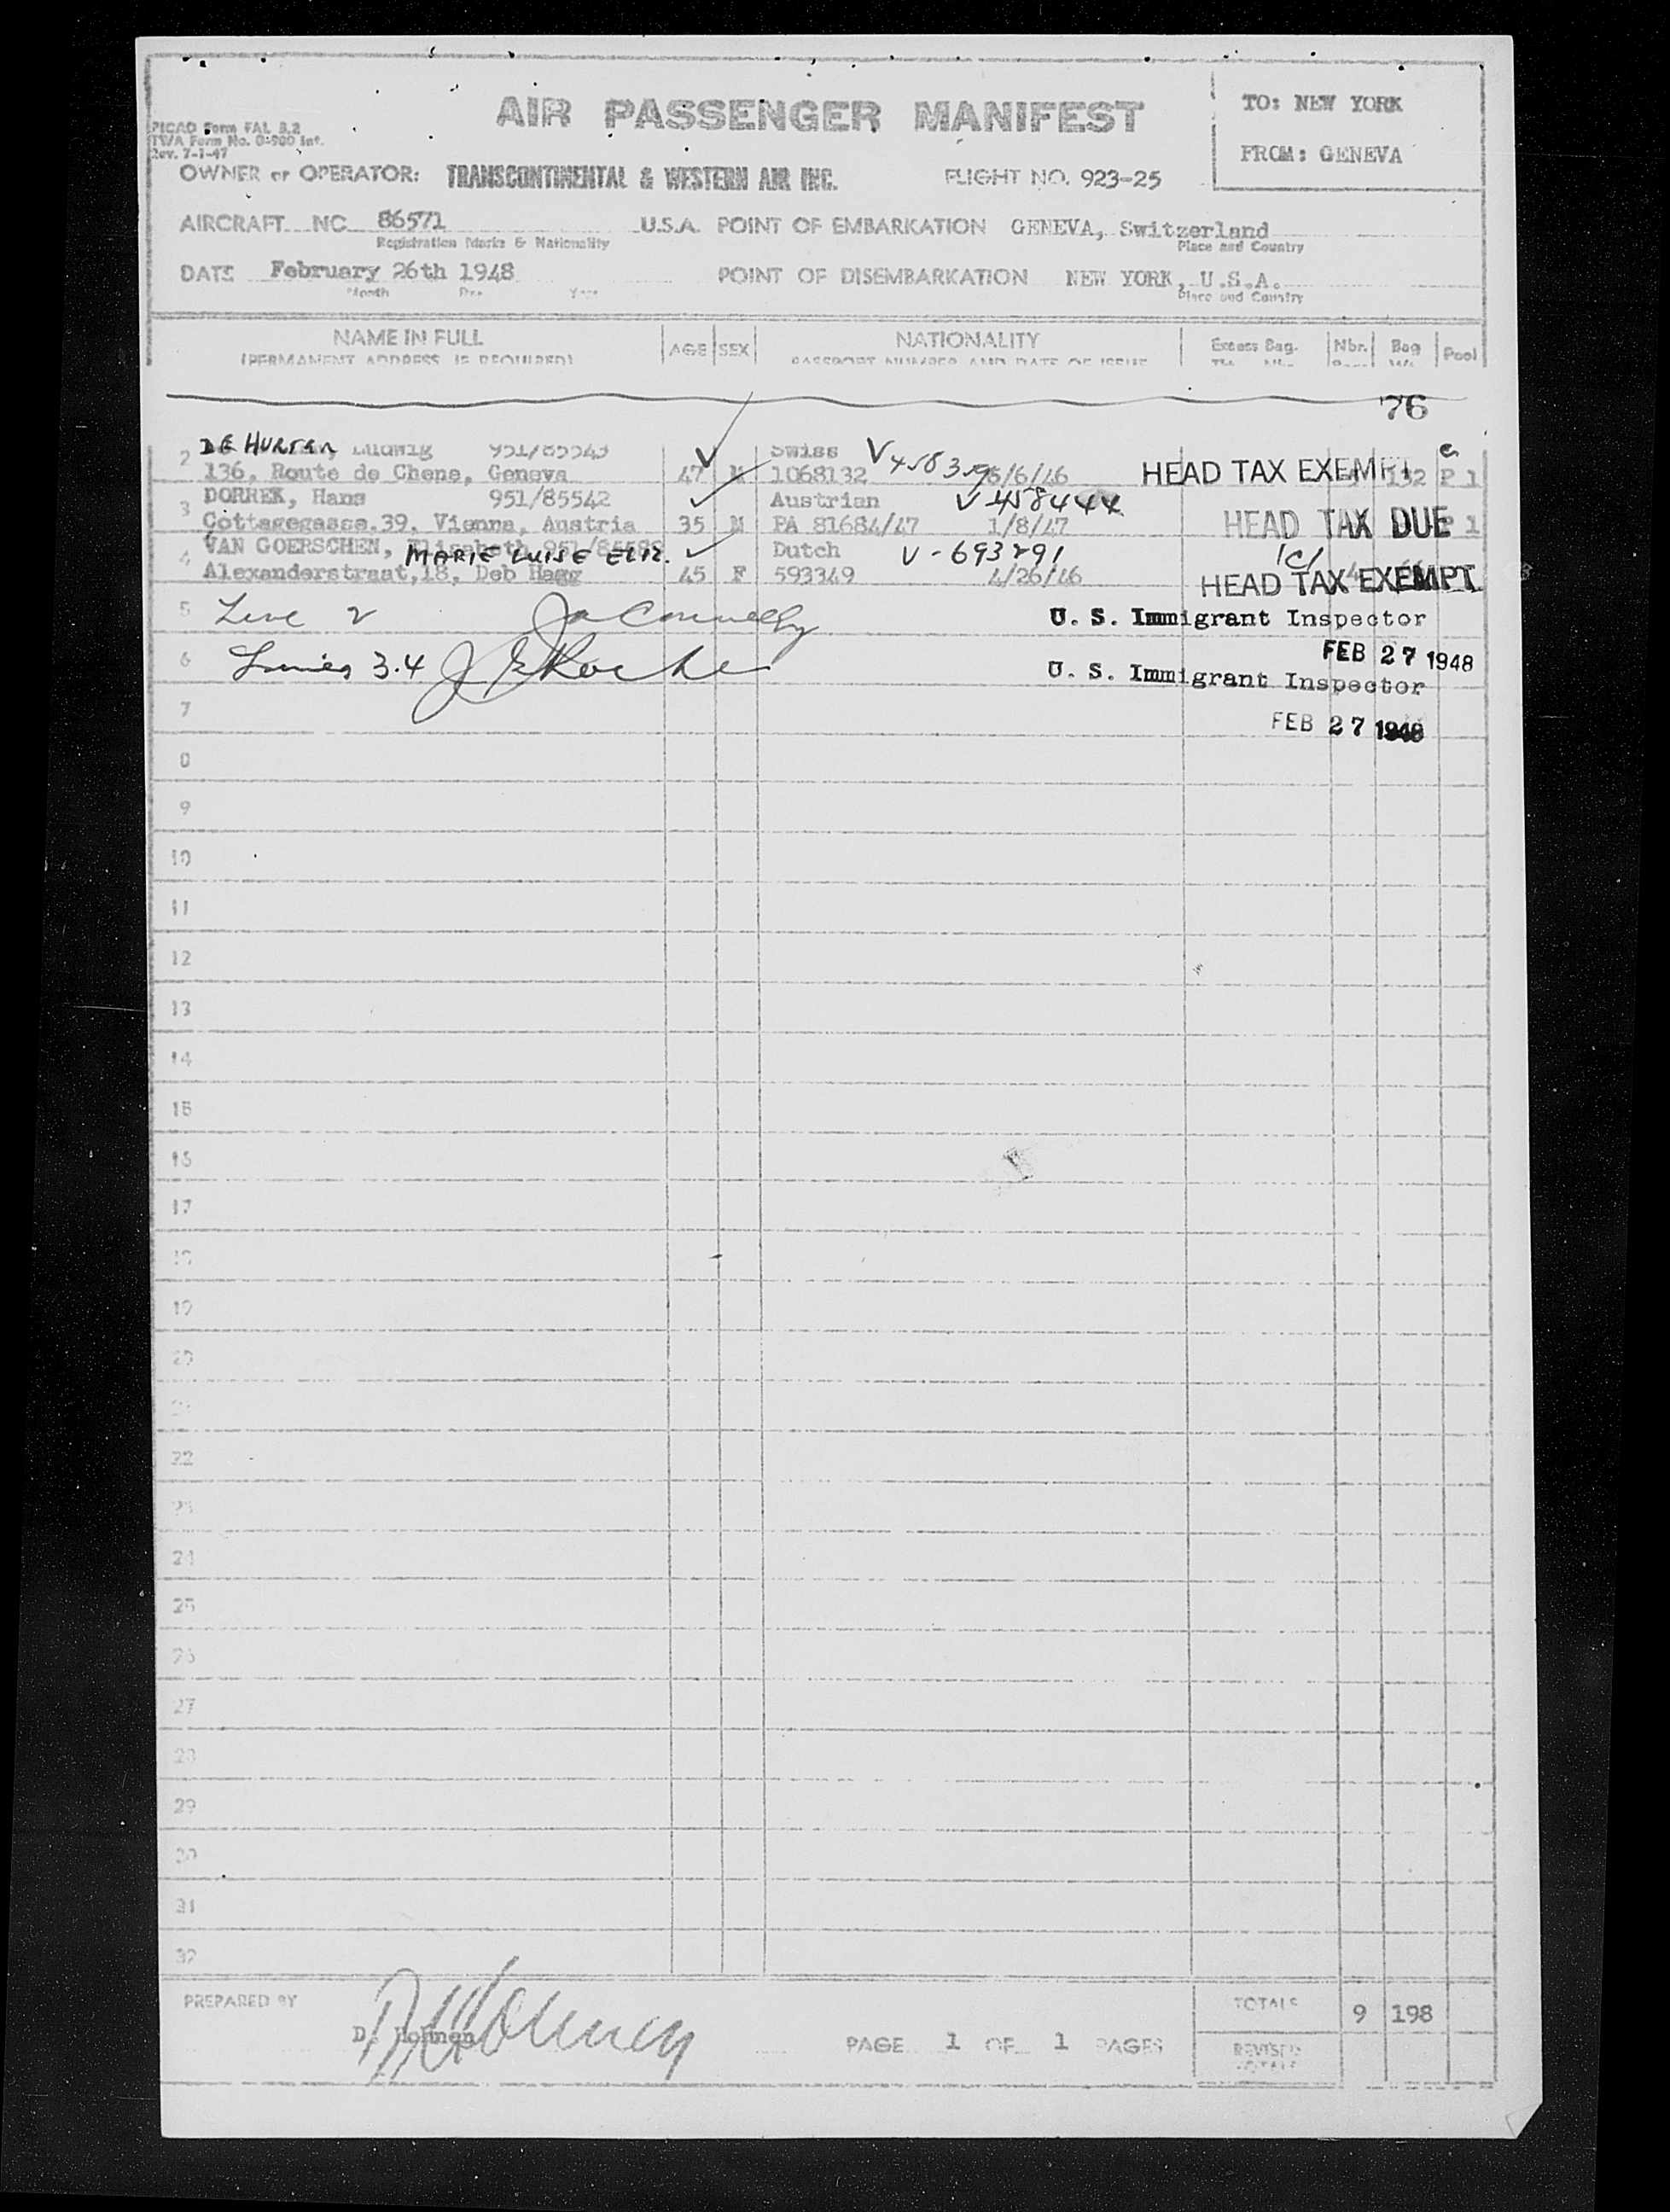 AIR PASSENGER MANIFEST
TO: NEW YORK
FROM: GENEVA
PICAO Form FAL 3.2
TWA Form No. 0-900 Int.
Rev. 7-1-47
OWNER or OPERATOR: TRANSCONTINENTAL & WESTERN AIR INC. FLIGHT NO. 923-25
AIRCRAFT NC 86571 U.S.A. POINT OF EMBARKATION GENEVA, Switzerland
Registration Marks & Nationality Place and Country
DATE February 26th 1948 POINT OF DISEMBARKATION NEW YORK, U.S.A.
Month Day Year Place and Country
NAME IN FULL AGE SEX NATIONALITY Excess Bag. Nbr. Bag Pool
(PERMANENT ADDRESS, IF REQUIRED) PASSPORT NUMBER AND DATE OF ISSUE
76
2 Ludwig 951/85543 Swiss
136, Route de Chene, Geneva 47 M 1068132 /6/46 HEAD TAX EXEMPT 132 P 1
3 DORREK, Hans 951/85542 Austrian V 458444
Cottagegasse.39. Vienna, Austria 35 M PA 81684/47 1/8/47 HEAD TAX DUE P 1
4 VAN GOERSCHEN, MARIE LUISE ELIZ. Dutch V-693291
Alexanderstraat,18, Deb Hagg 45 F 593349 4/26/46 HEAD TAX EXEMPT
5 Line 2 U. S. Immigrant Inspector
FEB 27 1948
6 Lines 3.4 U. S. Immigrant Inspector
7 FEB 27 1948
8
9
10
11
12
13
14
15
16
17
19
20
22
24
25
26
27
28
29
30
31
32
PREPARED BY TOTALS 9 198
PAGE 1 OF 1 PAGES REVISED TOTALS